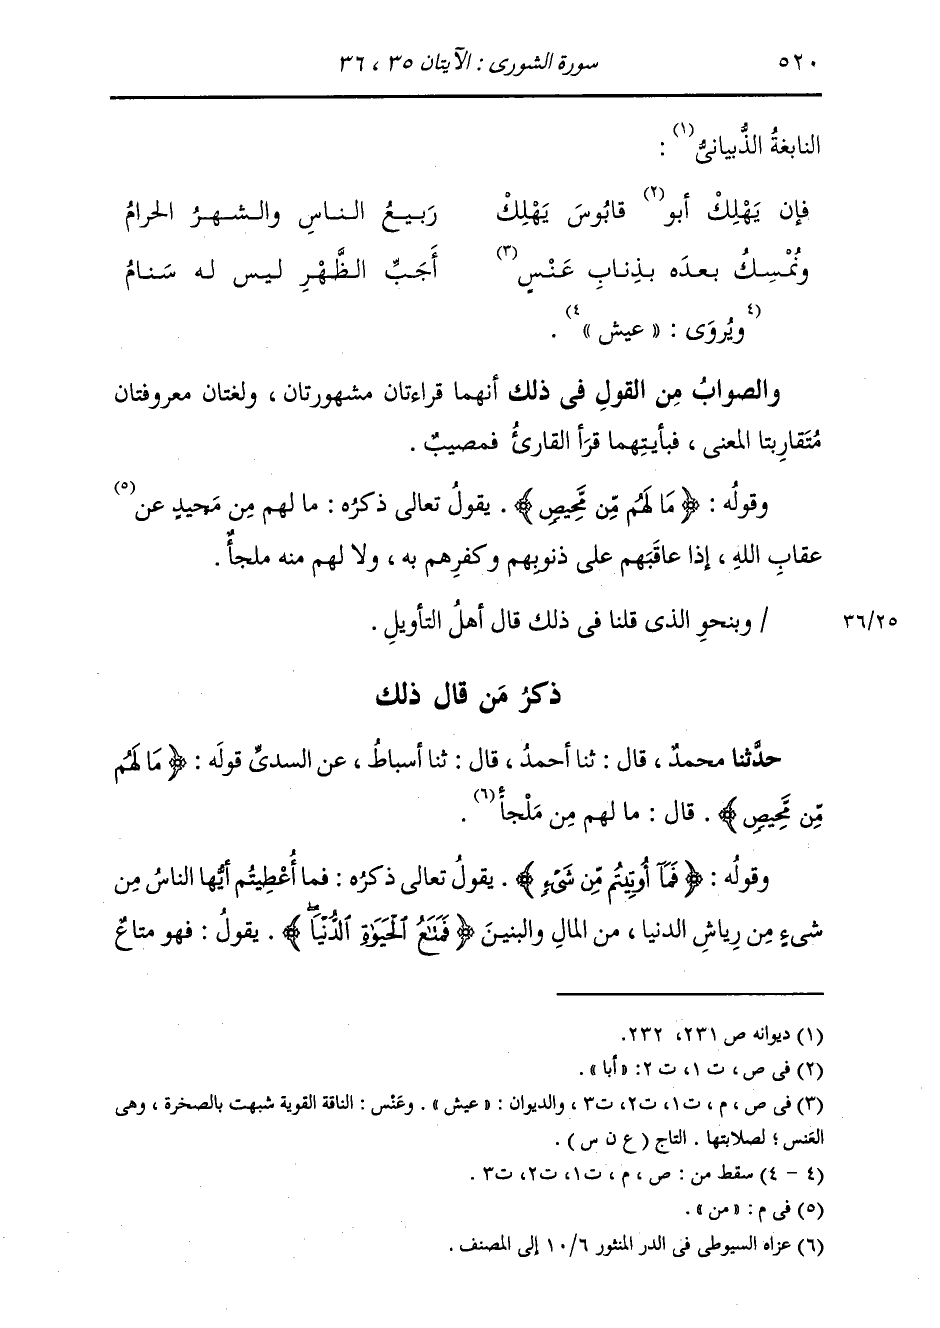 ٥٢٠ سورة الشورى : الآيتان ٣٥ ، ٣٦
النابغةُ الذُّبيانىُّ(١) :
فإن يَهْلِكْ أبو(٢) قابُوسَ يَهْلِكْ رَبيعُ الناسِ والشهرُ الحرامُ
ونُمْسِكُ بعدَه بذِنابِ عَنْسٍ(٣) أَجَبِّ الظَّهْرِ ليس له سَنامُ
(٤ويُرْوَى : « عيش »٤) .
والصوابُ مِن القولِ فى ذلك أنهما قراءتان مشهورتان ، ولغتان معروفتان
مُتَقارِبتا المعنى ، فبأيتِهما قرَأ القارئُ فمصيبٌ .
وقولُه : ﴿ مَا لَهُم مِّن مَّحِيصٍ ﴾ . يقولُ تعالى ذكرُه : ما لهم مِن مَحيدٍ عن(٥)
عقابِ اللهِ ، إذا عاقَبَهم على ذنوبِهم وكفرِهم به ، ولا لهم منه ملجأٌ .
٣٦/٢٥ / وبنحوِ الذى قلنا فى ذلك قال أهلُ التأويلِ .
ذكرُ مَن قال ذلك
حدَّثنا محمدٌ ، قال : ثنا أحمدُ ، قال : ثنا أسباطُ ، عن السدىِّ قولَه : ﴿ مَا لَهُم
مِّن مَّحِيصٍ ﴾ . قال : ما لهم مِن مَلْجأ(٦) .
وقولُه : ﴿ فَمَآ أُوتِيتُم مِّن شَىْءٍ ﴾ . يقولُ تعالى ذكرُه : فما أُعْطِيتُم أيُّها الناسُ مِن
شىءٍ مِن رِياشِ الدنيا ، من المالِ والبنينَ ﴿ فَمَتَٰعُ ٱلْحَيَوٰةِ ٱلدُّنْيَاۖ ﴾ . يقولُ : فهو متاعٌ
(١) ديوانه ص ٢٣١، ٢٣٢.
(٢) فى ص ، ت ١، ت ٢: «أبا» .
(٣) فى ص ، م ، ت١، ت٢، ت٣ ، والديوان : « عيش » . وعَنْس : الناقة القوية شبهت بالصخرة ، وهى
العَنس ؛ لصلابتها . التاج ( ع ن س ) .
(٤ - ٤) سقط من : ص ، م ، ت١، ت٢، ت٣ .
(٥) فى م : « من » .
(٦) عزاه السيوطى فى الدر المنثور ١٠/٦ إلى المصنف .